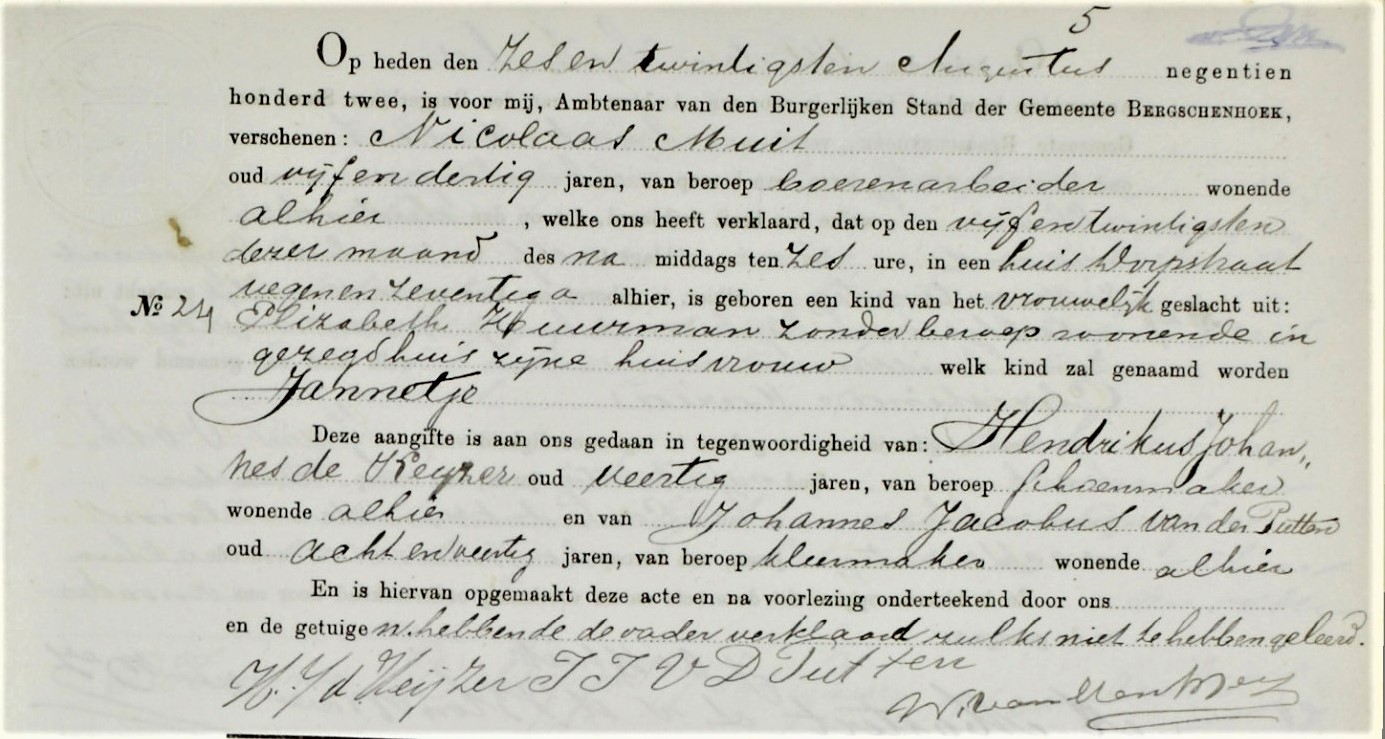 5
Op heden den zes en twintigsten Augustus negentien
honderd twee, is voor mij, Ambtenaar van den Burgerlijken Stand der Gemeente BERGSCHENHOEK,
verschenen: Nicolaas Muit
oud vijf en dertig jaren, van beroep boerenarbeider wonende
alhier, welke ons heeft verklaard, dat op den vijf en twintigsten
dezer maand des na middags ten zes ure, in een huis Dorpstraat
negen en zeventig a alhier, is geboren een kind van het vrouwelijk geslacht uit:
№ 24 Elizabeth Huurman zonder beroep wonende in
gezegd huis zijne huisvrouw welk kind zal genaamd worden
Jannetje
Deze aangifte is aan ons gedaan in tegenwoordigheid van: Hendrikus Johan„
nes de Keyzer oud veertig jaren, van beroep schoenmaker
wonende alhier en van Johannes Jacobus van der Putten
oud acht en veertig jaren, van beroep kleermaker wonende alhier
En is hiervan opgemaakt deze acte en na voorlezing onderteekend door ons
en de getuigen. hebbende de vader verklaard zulks niet te hebben geleerd.
H. J d Keijzer J J V D Putten